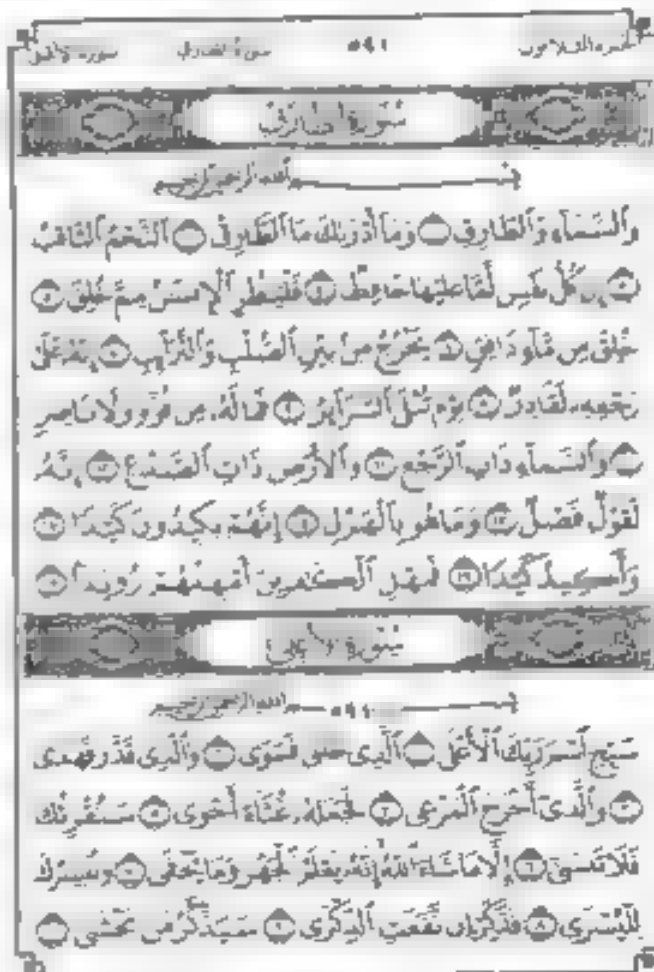 الجزء الثلاثون ٥٩١ سورة الطارق سورة الأعلى
سُورَةُ الطَّارِقِ
بِسْمِ اللَّهِ الرَّحْمَٰنِ الرَّحِيمِ
وَٱلسَّمَآءِ وَٱلطَّارِقِ ١ وَمَآ أَدْرَىٰكَ مَا ٱلطَّارِقُ ٢ ٱلنَّجْمُ ٱلثَّاقِبُ
٣ إِن كُلُّ نَفْسٍ لَّمَّا عَلَيْهَا حَافِظٌ ٤ فَلْيَنظُرِ ٱلْإِنسَٰنُ مِمَّ خُلِقَ ٥
خُلِقَ مِن مَّآءٍ دَافِقٍ ٦ يَخْرُجُ مِنۢ بَيْنِ ٱلصُّلْبِ وَٱلتَّرَآئِبِ ٧ إِنَّهُۥ عَلَىٰ
رَجْعِهِۦ لَقَادِرٌ ٨ يَوْمَ تُبْلَى ٱلسَّرَآئِرُ ٩ فَمَا لَهُۥ مِن قُوَّةٍ وَلَا نَاصِرٍ
١٠ وَٱلسَّمَآءِ ذَاتِ ٱلرَّجْعِ ١١ وَٱلْأَرْضِ ذَاتِ ٱلصَّدْعِ ١٢ إِنَّهُۥ
لَقَوْلٌ فَصْلٌ ١٣ وَمَا هُوَ بِٱلْهَزْلِ ١٤ إِنَّهُمْ يَكِيدُونَ كَيْدًا ١٥
وَأَكِيدُ كَيْدًا ١٦ فَمَهِّلِ ٱلْكَٰفِرِينَ أَمْهِلْهُمْ رُوَيْدًۢا ١٧
سُورَةُ الأَعْلَىٰ
بِسْمِ اللَّهِ الرَّحْمَٰنِ الرَّحِيمِ
٥٩١
سَبِّحِ ٱسْمَ رَبِّكَ ٱلْأَعْلَى ١ ٱلَّذِى خَلَقَ فَسَوَّىٰ ٢ وَٱلَّذِى قَدَّرَ فَهَدَىٰ
٣ وَٱلَّذِىٓ أَخْرَجَ ٱلْمَرْعَىٰ ٤ فَجَعَلَهُۥ غُثَآءً أَحْوَىٰ ٥ سَنُقْرِئُكَ
فَلَا تَنسَىٰٓ ٦ إِلَّا مَا شَآءَ ٱللَّهُ إِنَّهُۥ يَعْلَمُ ٱلْجَهْرَ وَمَا يَخْفَىٰ ٧ وَنُيَسِّرُكَ
لِلْيُسْرَىٰ ٨ فَذَكِّرْ إِن نَّفَعَتِ ٱلذِّكْرَىٰ ٩ سَيَذَّكَّرُ مَن يَخْشَىٰ ١٠